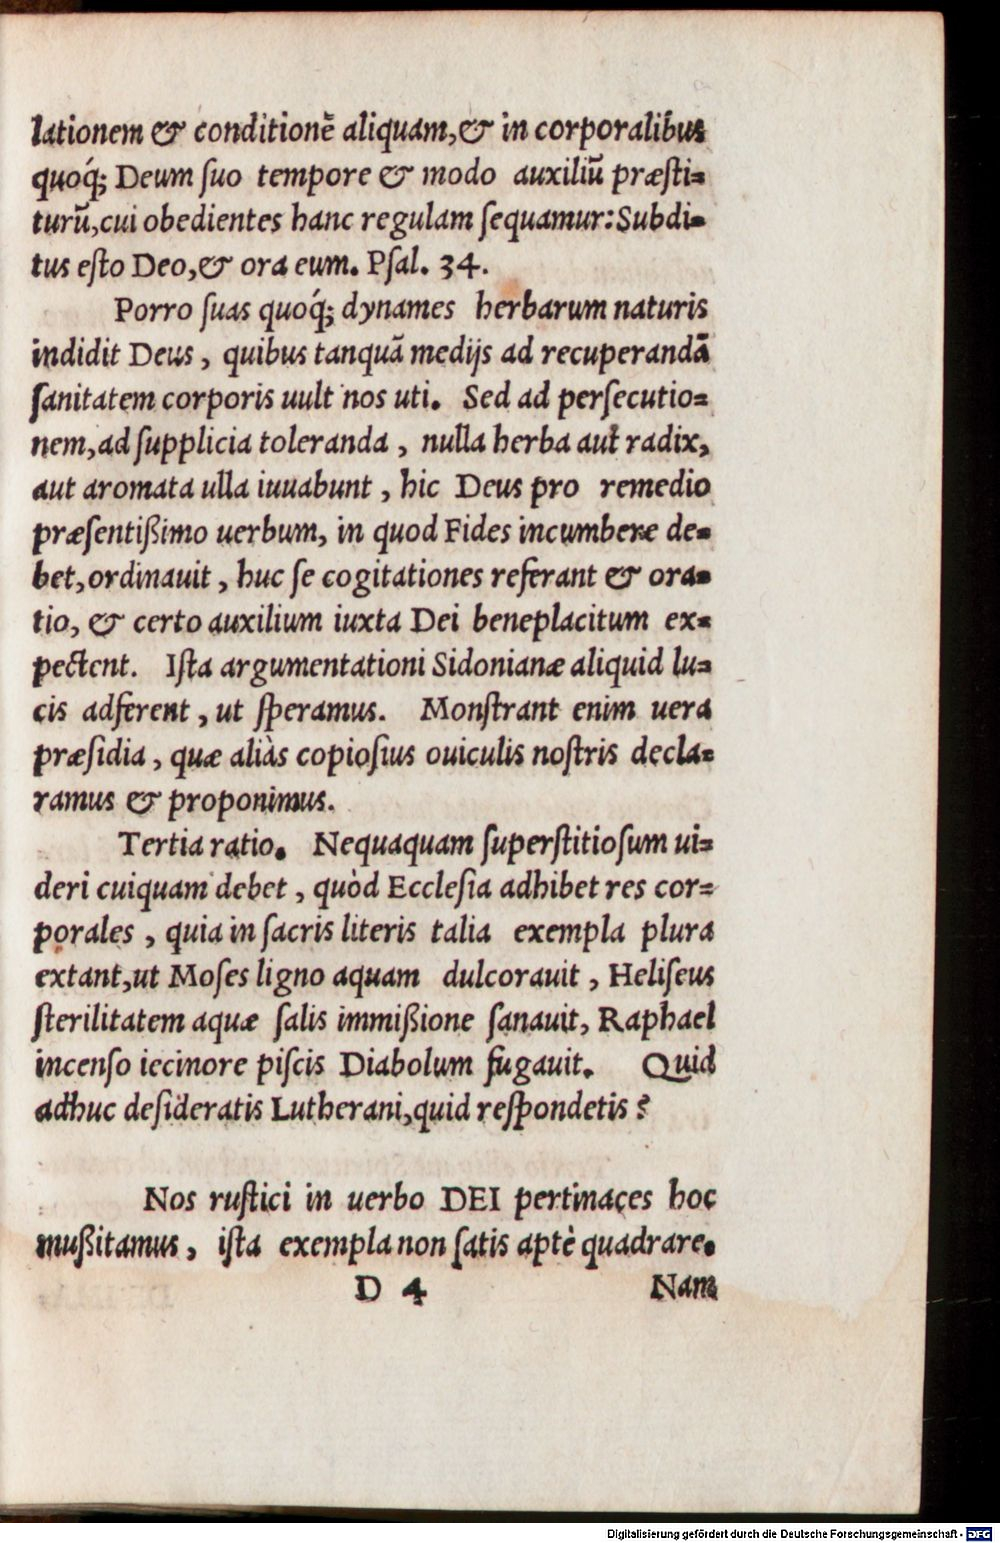 lationem & conditionẽ aliquam,& in corporalibus
quoq́; Deum ſuo tempore & modo auxiliũ præſti=
turũ,cui obedientes hanc regulam ſequamur: Subdi=
tus eſto Deo,& ora eum. Pſal. 34.
Porro ſuas quoq́; dynames herbarum naturis
indidit Deus, quibus tanquã medijs ad recuperandã
ſanitatem corporis uult nos uti. Sed ad perſecutio=
nem,ad ſupplicia toleranda, nulla herba aut radix,
aut aromata ulla iuuabunt, hic Deus pro remedio
præſentißimo uerbum, in quod Fides incumbere de=
bet,ordinauit, huc ſe cogitationes referant & ora=
tio, & certo auxilium iuxta Dei beneplacitum ex=
pectent. Iſta argumentationi Sidonianæ aliquid lu=
cis adferent, ut ſperamus. Monſtrant enim uera
præſidia, quæ aliàs copioſius ouiculis noſtris decla=
ramus & proponimus.
Tertia ratio. Nequaquam ſuperſtitioſum ui=
deri cuiquam debet, quòd Eccleſia adhibet res cor=
porales, quia in ſacris literis talia exempla plura
extant,ut Moſes ligno aquam dulcorauit, Heliſeus
ſterilitatem aquæ ſalis immißione ſanauit, Raphael
incenſo iecinore piſcis Diabolum fugauit. Quid
adhuc deſideratis Lutherani,quid reſpondetis?
Nos ruſtici in uerbo DEI pertinaces hoc
mußitamus, iſta exempla non ſatis aptè quadrare.
D 4 Nam
Digitalisierung gefördert durch die Deutsche Forschungsgemeinschaft - DFG